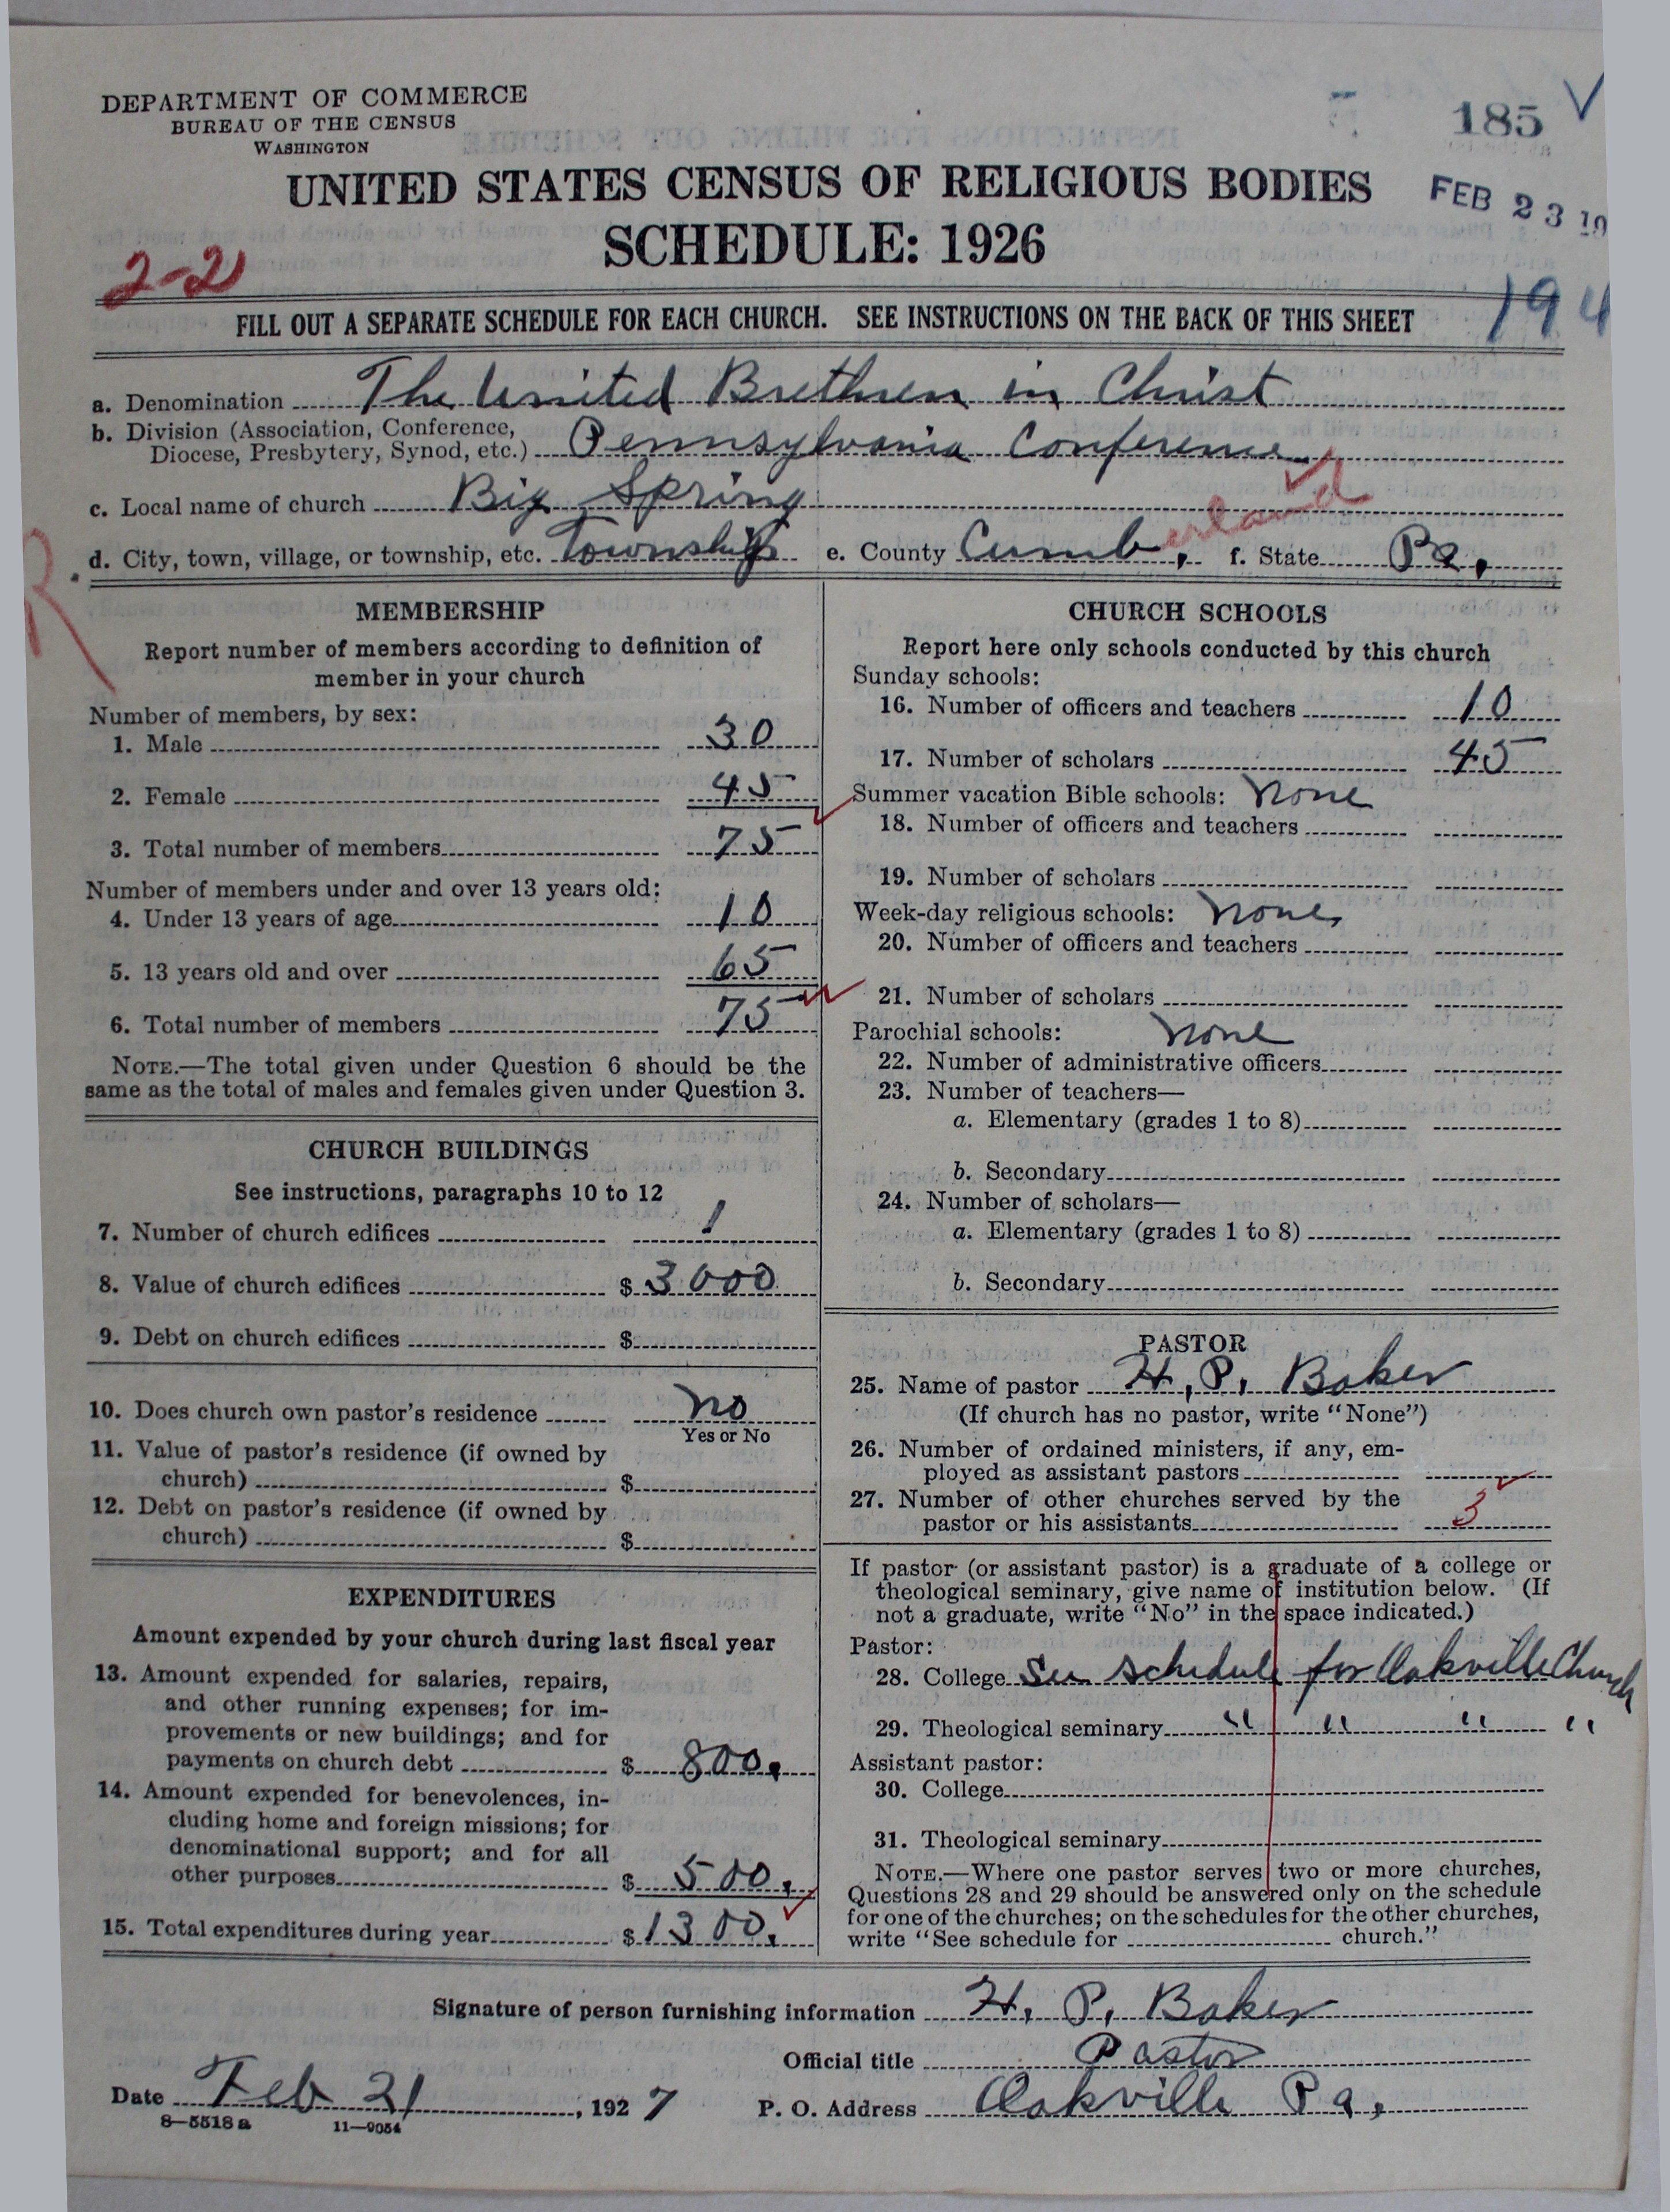 DEPARTMENT OF COMMERCE
BUREAU OF THE CENSUS
WASHINGTON
185
UNITED STATES CENSUS OF RELIGIOUS BODIES
FEB 23 19
SCHEDULE: 1926
2-21
194
FILL OUT A SEPARATE SCHEDULE FOR EACH CHURCH. SEE INSTRUCTIONS ON THE BACK OF THIS SHEET
a. Denomination The United Brethren in Christ
b. Division (Association, Conference,
Diocese, Presbytery, Synod, etc.) Pennsylvania Conference
c. Local name of church Big Spring
d. City, town, village, or township, etc. Township e. County Cumberland f. State Pa.
R
MEMBERSHIP
Report number of members according to definition of
member in your church
Number of members, by sex:
1. Male 30
2. Female 45
3. Total number of members 75
Number of members under and over 13 years old:
4. Under 13 years of age 10
5. 13 years old and over 65
6. Total number of members 75
NOTE.—The total given under Question 6 should be the
same as the total of males and females given under Question 3.
CHURCH BUILDINGS
See instructions, paragraphs 10 to 12
7. Number of church edifices 1
8. Value of church edifices $3000
9. Debt on church edifices $
10. Does church own pastor's residence no
Yes or No
11. Value of pastor's residence (if owned by
church) $
12. Debt on pastor's residence (if owned by
church) $
EXPENDITURES
Amount expended by your church during last fiscal year
13. Amount expended for salaries, repairs,
and other running expenses; for im-
provements or new buildings; and for
payments on church debt $ 800.
14. Amount expended for benevolences, in-
cluding home and foreign missions; for
denominational support; and for all
other purposes $ 500.
15. Total expenditures during year $1300.
CHURCH SCHOOLS
Report here only schools conducted by this church
Sunday schools:
16. Number of officers and teachers 10
17. Number of scholars 45
Summer vacation Bible schools: None
18. Number of officers and teachers
19. Number of scholars
Week-day religious schools: None
20. Number of officers and teachers
21. Number of scholars
Parochial schools: None
22. Number of administrative officers
23. Number of teachers—
a. Elementary (grades 1 to 8)
b. Secondary
24. Number of scholars—
a. Elementary (grades 1 to 8)
b. Secondary
PASTOR
25. Name of pastor H. P. Baker
(If church has no pastor, write "None")
26. Number of ordained ministers, if any, em-
ployed as assistant pastors
27. Number of other churches served by the
pastor or his assistants 3
If pastor (or assistant pastor) is a graduate of a college or
theological seminary, give name of institution below. (If
not a graduate, write "No" in the space indicated.)
Pastor:
28. College See schedule for Oakville Church
29. Theological seminary " " " "
Assistant pastor:
30. College
31. Theological seminary
NOTE.—Where one pastor serves two or more churches,
Questions 28 and 29 should be answered only on the schedule
for one of the churches; on the schedules for the other churches,
write "See schedule for church."
Signature of person furnishing information H. P. Baker
Official title Pastor
Date Feb 21, 1927 P. O. Address Oakville Pa.
8—5518 a 11—9054